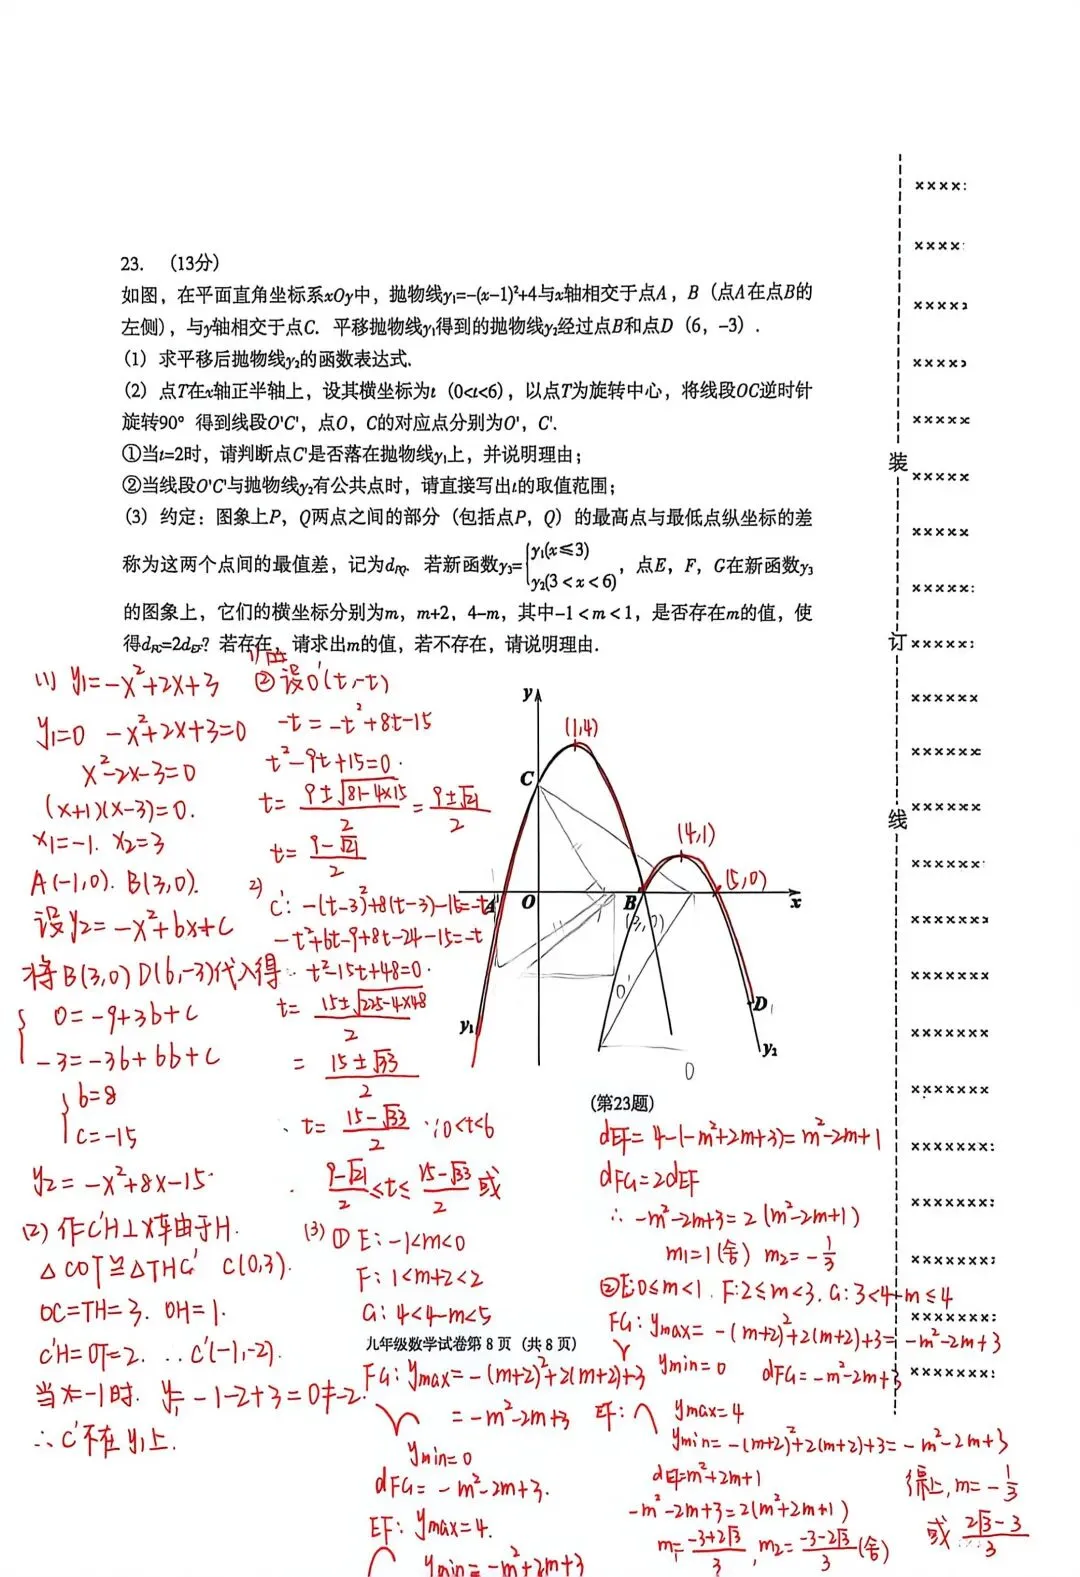 23. （13分）
如图，在平面直角坐标系xOy中，抛物线y₁=-(x-1)²+4与x轴相交于点A，B（点A在点B的
左侧），与y轴相交于点C．平移抛物线y₁得到的抛物线y₂经过点B和点D（6，-3）.
(1) 求平移后抛物线y₂的函数表达式.
(2) 点T在x轴正半轴上，设其横坐标为t（0<t<6），以点T为旋转中心，将线段OC逆时针
旋转90° 得到线段O'C'，点O，C的对应点分别为O'，C'.
①当t=2时，请判断点C'是否落在抛物线y₁上，并说明理由；
②当线段O'C'与抛物线y₂有公共点时，请直接写出t的取值范围；
(3) 约定：图象上P，Q两点之间的部分（包括点P，Q）的最高点与最低点纵坐标的差
称为这两个点间的最值差，记为dPQ. 若新函数y₃={y₁(x≤3) y₂(3<x<6)，点E，F，G在新函数y₃
的图象上，它们的横坐标分别为m，m+2，4-m，其中-1<m<1，是否存在m的值，使
得dFG=2dEF？若存在，请求出m的值，若不存在，请说明理由.
(1) y₁=-x²+2x+3
y₁=0 -x²+2x+3=0
x²-2x-3=0
(x+1)(x-3)=0.
x₁=-1. x₂=3
A(-1,0). B(3,0).
设y₂=-x²+bx+c
将B(3,0) D(6,-3)代入得
{0=-9+3b+c
-3=-36+6b+c
{b=8
c=-15
y₂=-x²+8x-15
(2) 作C'H⊥x轴于H.
△COT≌△THC' C(0,3).
OC=TH=3. OH=1.
C'H=OT=2. ∴C'(-1,-2).
当x=-1时. y₁=-1-2+3=0≠-2.
∴C'不在y₁上.
②设O'(t,-t)
-t=-t²+8t-15
t²-9t+15=0.
t=(9±√(81-4×15))/2=(9±√21)/2
t=(9-√21)/2
2)
C': -(t-3)²+8(t-3)-15=-t
-t²+6t-9+8t-24-15=-t
t²-15t+48=0.
t=(15±√(225-4×48))/2
=(15±√33)/2
∴t=(15-√33)/2 ∵0<t<6
(9-√21)/2≤t≤(15-√33)/2或
y
(1,4)
C
(4,1)
(5,0)
A
O
B
x
O'
D
y₁
y₂
(第23题)
(3) ①E: -1<m<0
F: 1<m+2<2
G: 4<4-m<5
九年级数学试卷第 8 页（共 8 页）
FG: ymax=-(m+2)²+2(m+2)+3
=-m²-2m+3
ymin=0
dFG=-m²-2m+3.
EF: ymax=4.
ymin=-m²+2m+3
dEF=4-(-m²+2m+3)=m²-2m+1
dFG=2dEF
∴-m²-2m+3=2(m²-2m+1)
m₁=1(舍) m₂=-1/3
②E:0≤m<1. F:2≤m+2<3. G:3<4-m≤4
FG: ymax=-(m+2)²+2(m+2)+3=-m²-2m+3
ymin=0 dFG=-m²-2m+3
EF: ymax=4
ymin=-(m+2)²+2(m+2)+3=-m²-2m+3
dEF=m²+2m+1
-m²-2m+3=2(m²+2m+1)
m₁=(-3+2√3)/3, m₂=(-3-2√3)/3(舍)
综上, m=-1/3
或(2√3-3)/3
装
订
线